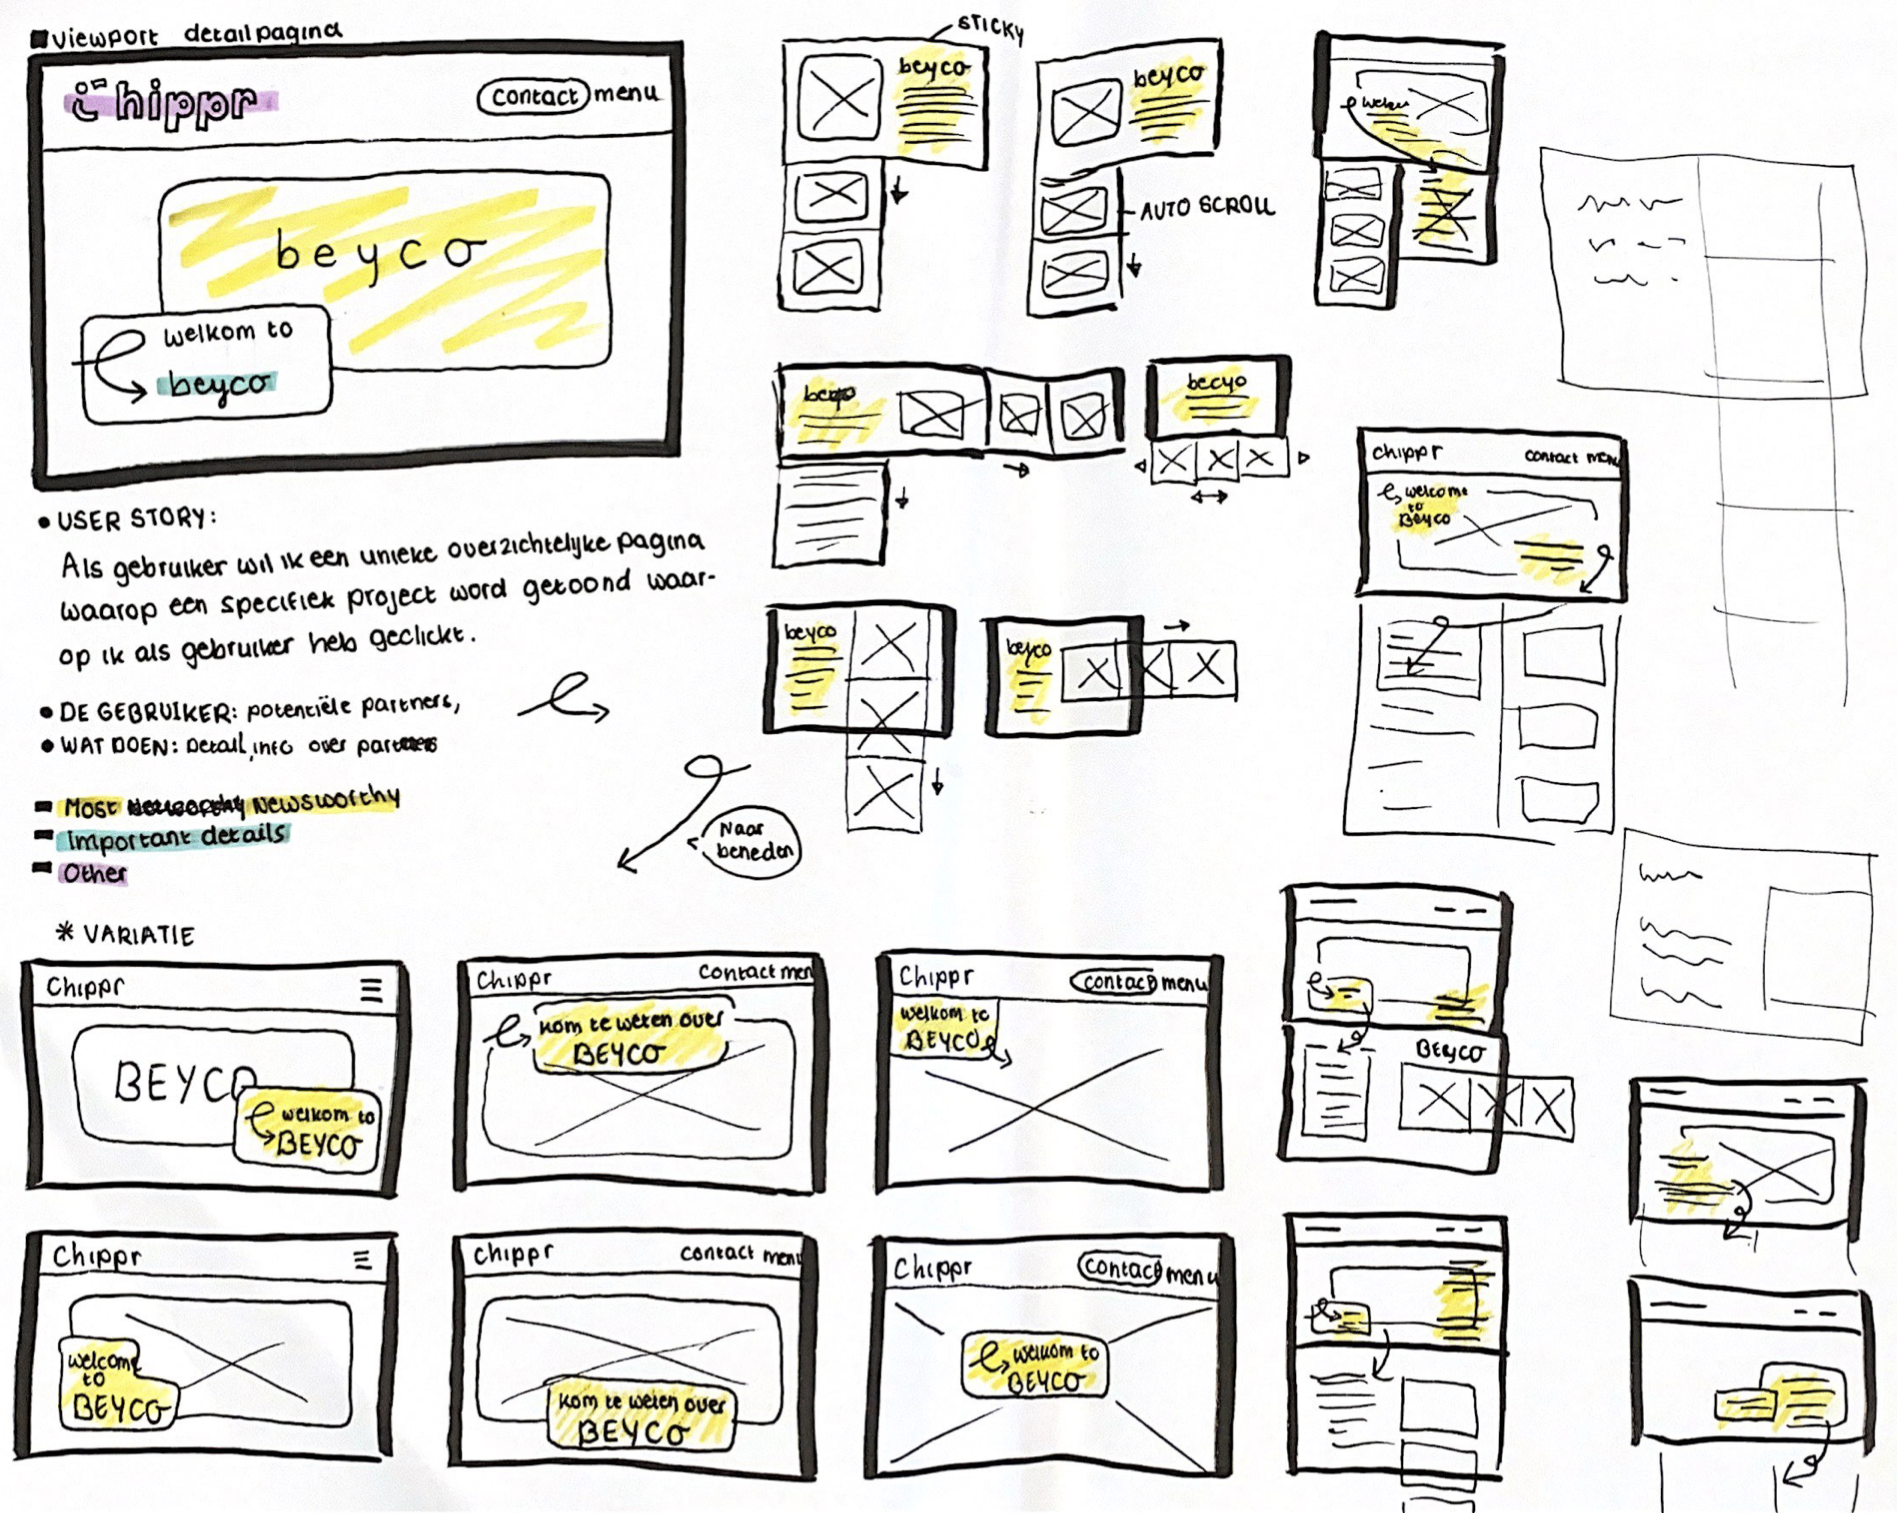 Viewport detailpagina
Chippr
contact menu
beyco
welkom to
beyco
• USER STORY:
Als gebruiker wil ik een unieke overzichtelijke pagina
waarop een specifiek project word getoond waar-
op ik als gebruiker heb geclickt.
• DE GEBRUIKER: potentiële partners,
• WAT DOEN: Detail, info over partners
Most Newsworthy
Important details
Other
Naar
beneden
STICKY
beyco
beyco
AUTO SCROLL
beyco
becyo
beyco
beyco
chippr
contact menu
welcome
to
Beyco
* VARIATIE
Chippr
BEYCO
welkom to
BEYCO
Chippr
Contact men
kom te weten over
BEYCO
Chippr
contact menu
welkom to
BEYCO
BEYCO
Chippr
welcome
to
BEYCO
Chippr
contact menu
kom te weten over
BEYCO
Chippr
contact menu
welkom to
BEYCO